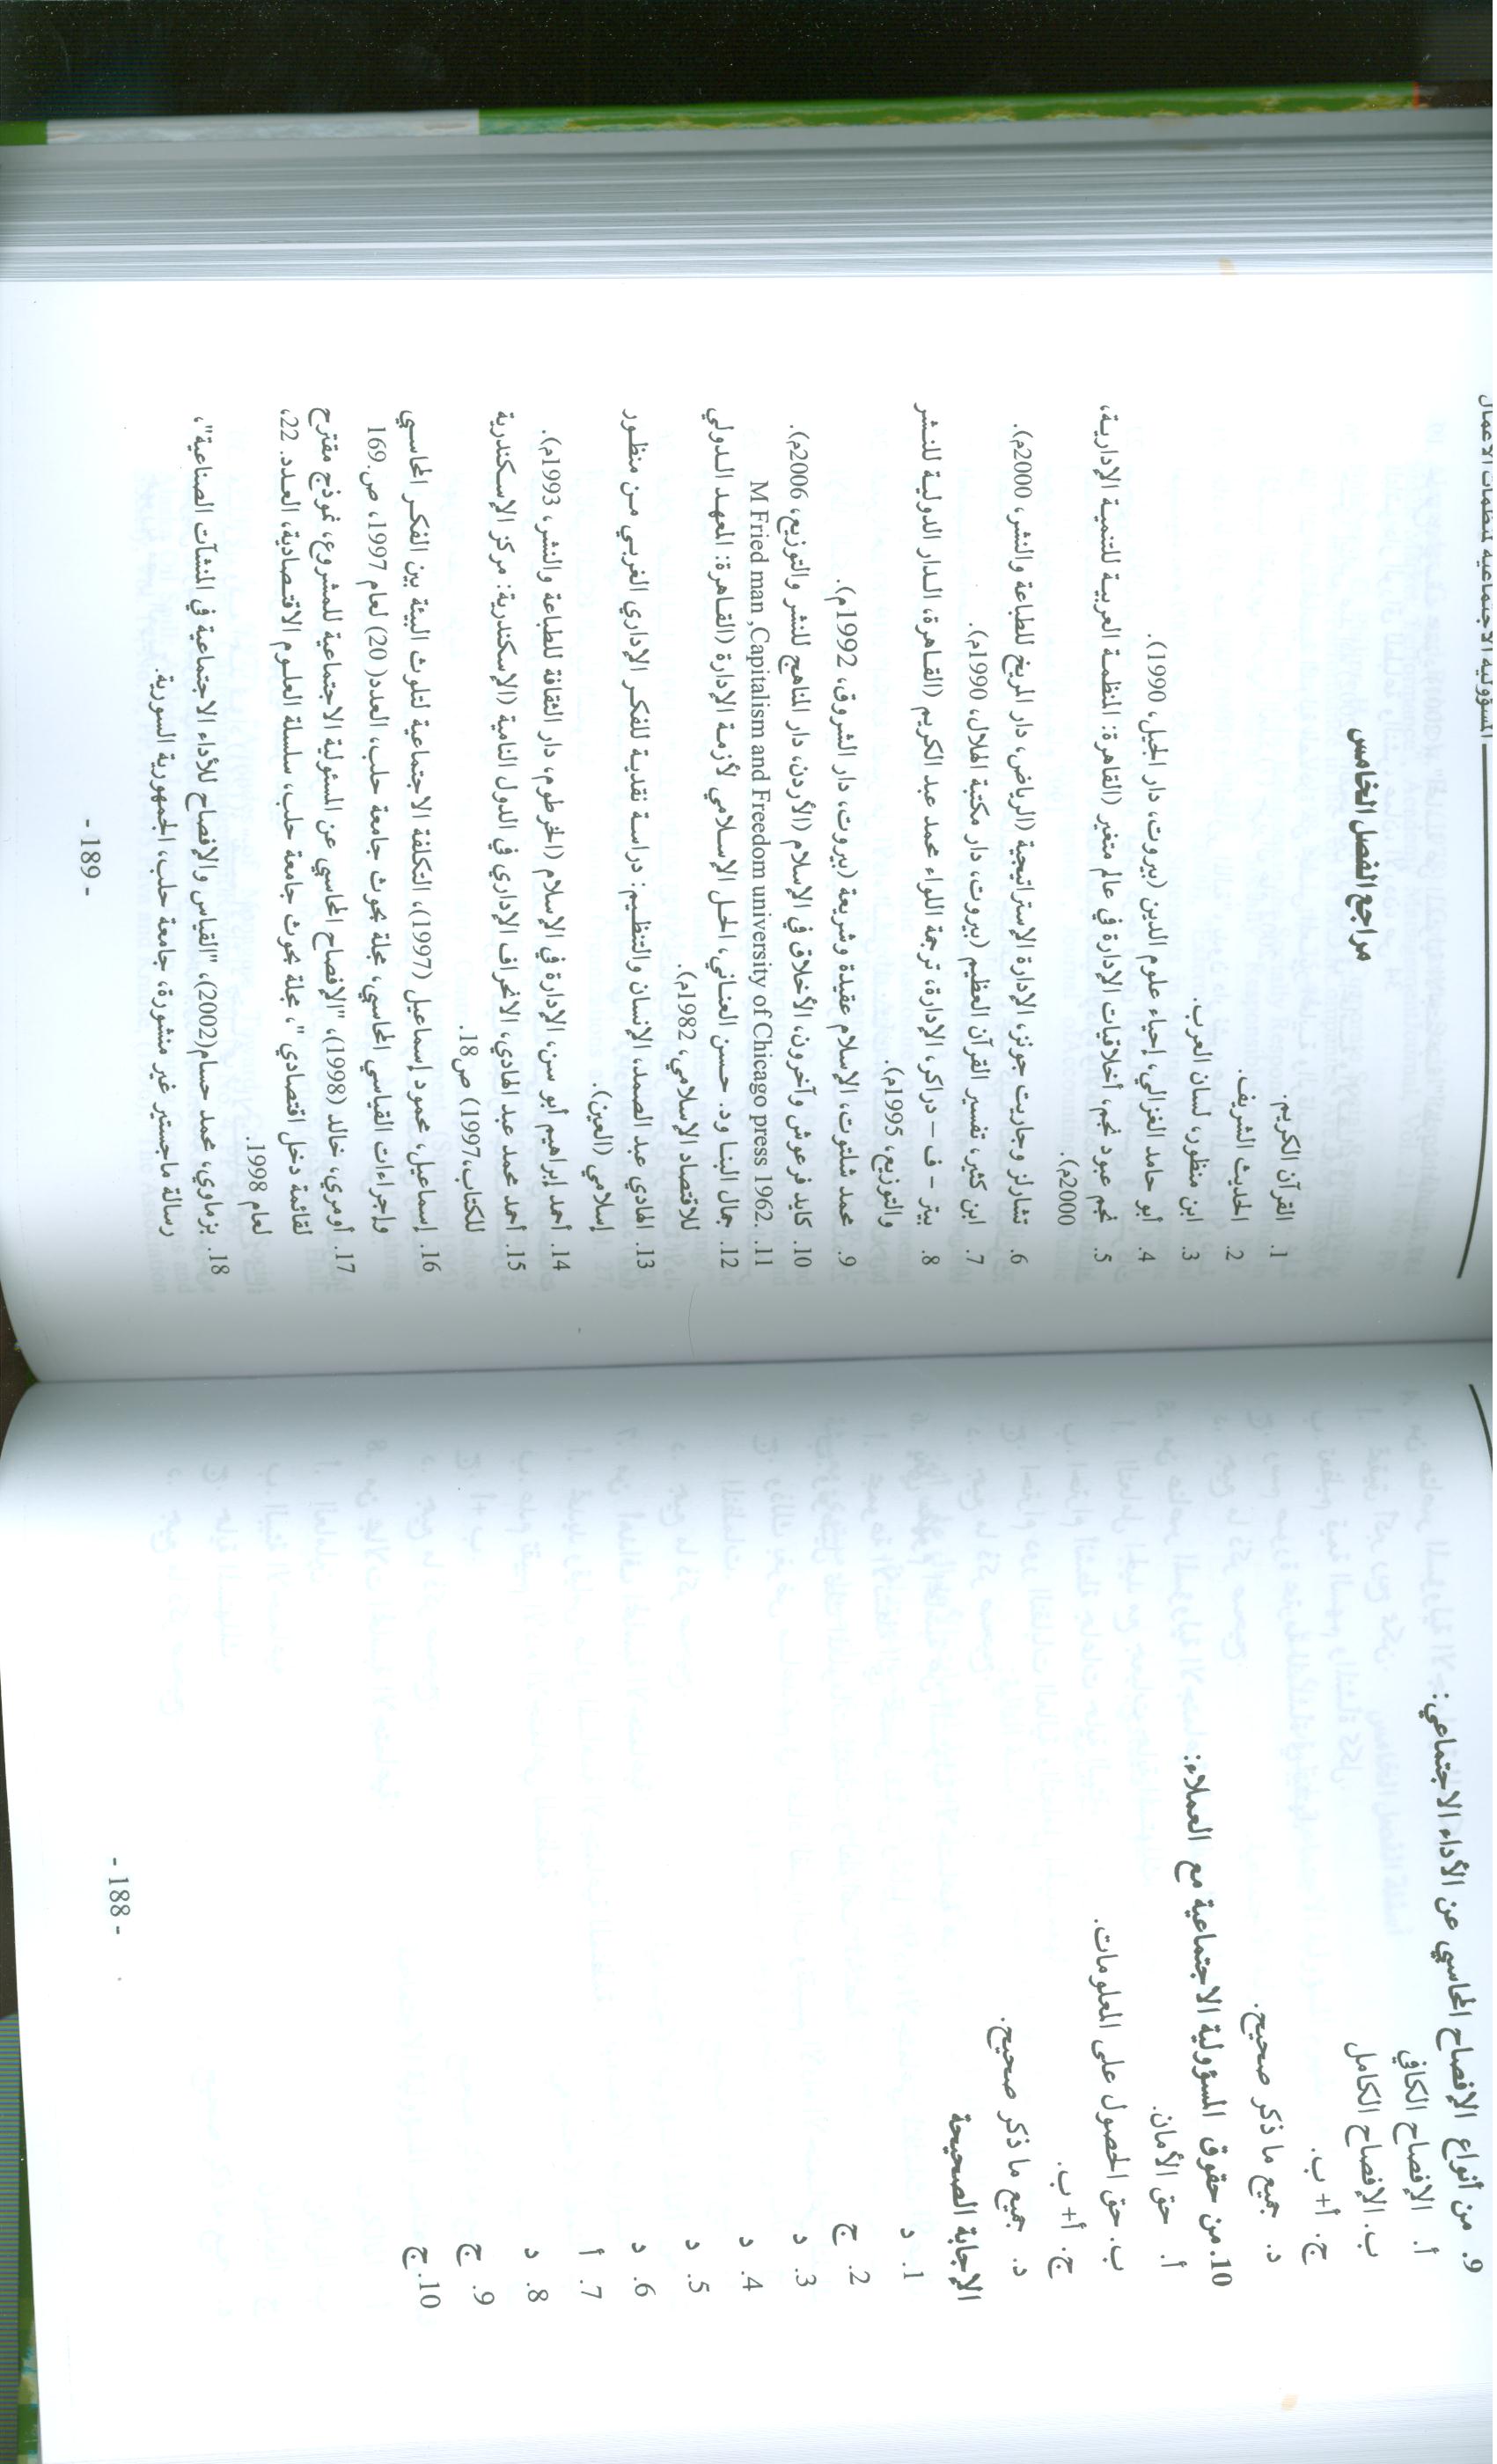 9. من أنواع الإفصاح المحاسبي عن الأداء الاجتماعي:
أ. الإفصاح الكافي
ب. الإفصاح الكامل
ج. أ+ ب.
د. جميع ما ذكر صحيح.
10. من حقوق المسؤولية الاجتماعية مع العملاء:
أ. حق الأمان.
ب. حق الحصول على المعلومات.
ج. أ+ ب.
د. جميع ما ذكر صحيح.
الإجابة الصحيحة
1. د
2. ج
3. د
4. د
5. د
6. د
7. أ
8. د
9. ج
10. ج
- 188 -
المسؤولية الاجتماعية لمنظمات الأعمال
مراجع الفصل الخامس
1. القرآن الكريم.
2. الحديث الشريف.
3. ابن منظور، لسان العرب.
4. أبو حامد الغزالي، إحياء علوم الدين (بيروت، دار الجيل، 1990).
5. نجم عبود نجم، أخلاقيات الإدارة في عالم متغير (القاهرة: المنظمة العربية للتنمية الإدارية،
2000م).
6. تشارلز وجاريت جونز، الإدارة الإستراتيجية (الرياض، دار المريخ للطباعة والنشر، 2000م).
7. ابن كثير، تفسير القرآن العظيم (بيروت، دار مكتبة الهلال، 1990م).
8. بيتر – ف – دراكر، الإدارة، ترجمة اللواء محمد عبد الكريم (القاهرة، الدار الدولية للنشر
والتوزيع، 1995م).
9. محمد شلتوت، الإسلام عقيدة وشريعة (بيروت، دار الشروق، 1992م).
10. كايد فرعوش وآخرون، الأخلاق في الإسلام (الأردن، دار المناهج للنشر والتوزيع، 2006م).
11. M Fried man ,Capitalism and Freedom university of Chicago press 1962.
12. جمال البنا ود. حسن العناني، الحل الإسلامي لأزمة الإدارة (القاهرة: المعهد الدولي
للاقتصاد الإسلامي، 1982م).
13. الهادي عبد الصمد، الإنسان والتنظيم: دراسة نقدية للفكر الإداري الغربي من منظور
إسلامي (العين).
14. أحمد إبراهيم أبو سن، الإدارة في الإسلام (الخرطوم، دار الثقافة للطباعة والنشر، 1993م).
15. أحمد محمد عبد الهادي، الانحراف الإداري في الدول النامية (الإسكندرية: مركز الإسكندرية
للكتاب،1997) ص18.
16. إسماعيل، محمود إسماعيل (1997)، التكلفة الاجتماعية لتلوث البيئة بين الفكر المحاسبي
وإجراءات القياسي المحاسبي، مجلة بحوث جامعة حلب، العدد( 20) لعام 1997، ص.169
17. أومري، خالد (1998)، "الإفصاح المحاسبي عن المسئولية الاجتماعية للمشروع، نموذج مقترح
لقائمة دخل اقتصادي"، مجلة بحوث جامعة حلب، سلسلة العلوم الاقتصادية، العدد. 22،
لعام 1998.
18. بزماوي، محمد حسام(2002)، "القياس والإفصاح للأداء الاجتماعية في المنشآت الصناعية"،
رسالة ماجستير غير منشورة، جامعة حلب، الجمهورية السورية.
- 189 -